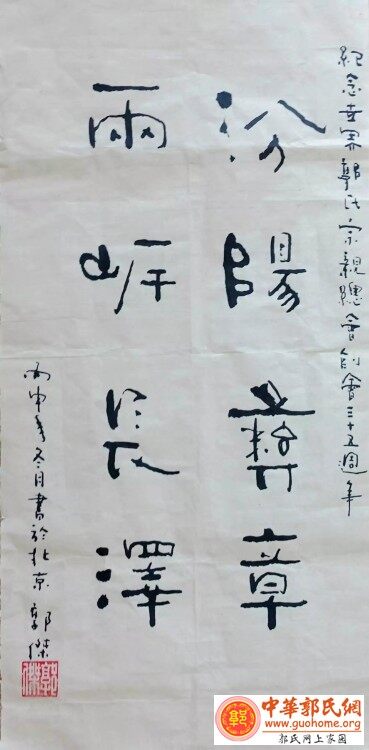 紀念世界郭氏宗親總會創會三十五週年
汾陽彝章
兩岸長澤
丙申年冬月書於北京 郭傑
郭傑
郭
中華郭氏網
www.guohome.org
郭氏网上家園